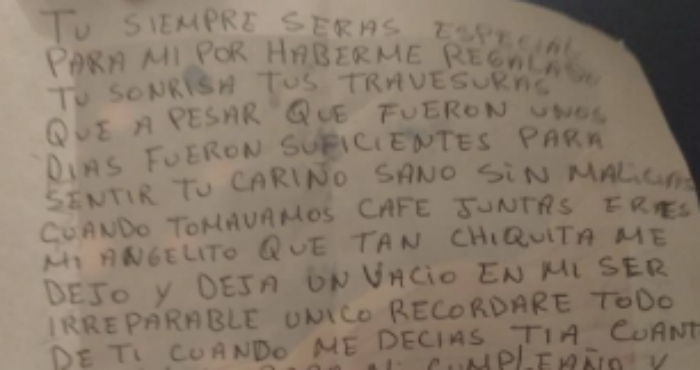 TU SIEMPRE SERAS ESPECIAL
PARA MI POR HABERME REGALADO
TU SONRISA TUS TRAVESURAS
QUE A PESAR QUE FUERON UNOS
DIAS FUERON SUFICIENTES PARA
SENTIR TU CARIÑO SANO SIN MALICIAS
CUANDO TOMAVAMOS CAFE JUNTAS ERES
MI ANGELITO QUE TAN CHIQUITA ME
DEJO Y DEJA UN VACIO EN MI SER
IRREPARABLE UNICO RECORDARE TODO
DE TI CUANDO ME DECIAS TIA CUANT
CUMPLEAÑO Y